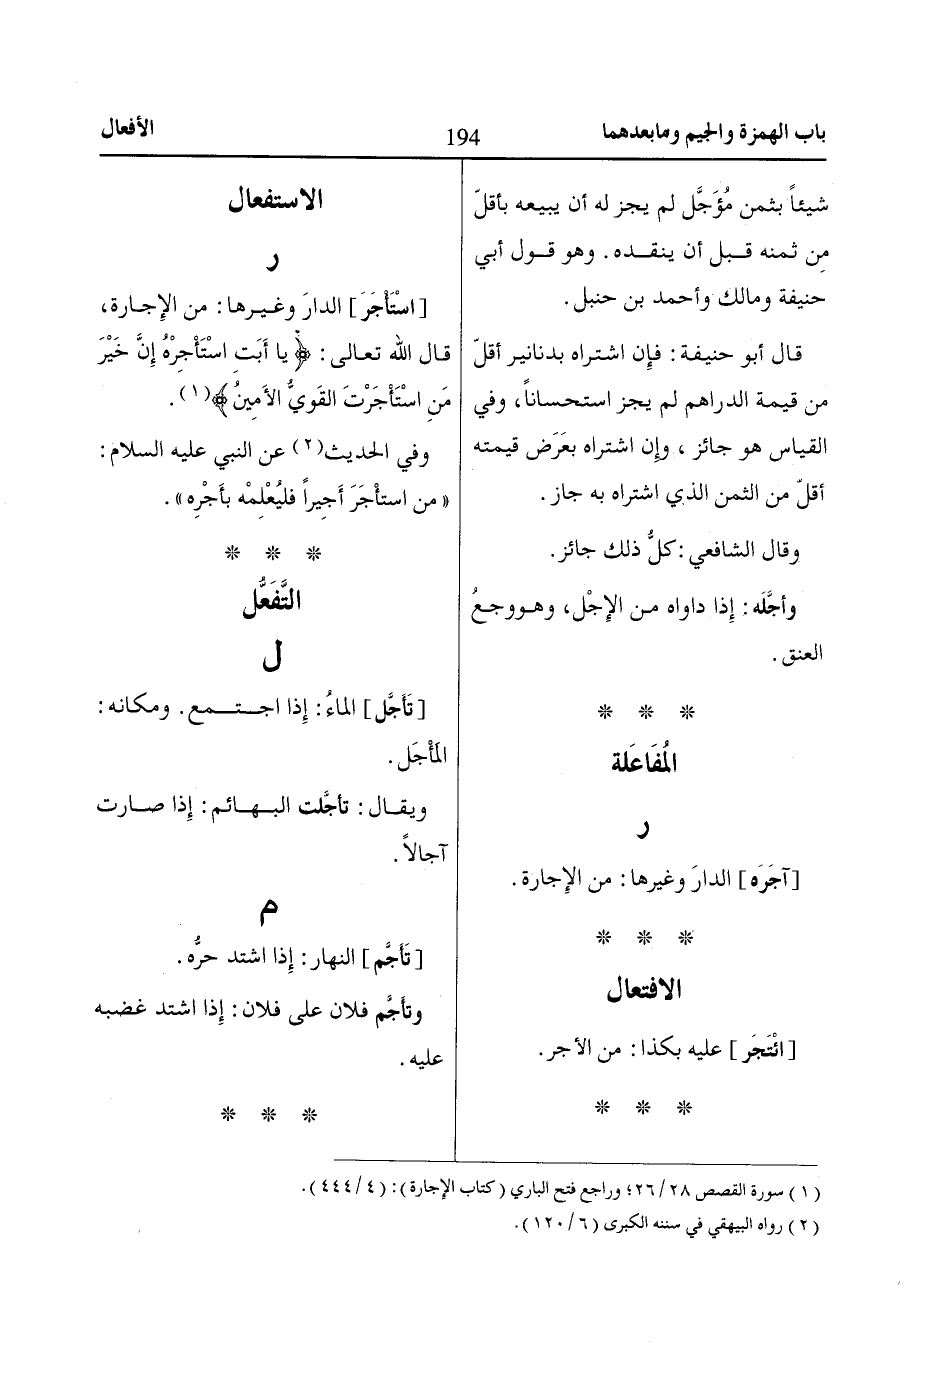 باب الهمزة والجيم ومابعدهما
194
الأفعال
شيئاً بثمن مُؤَجَّل لم يجز له أن يبيعه بأقلّ
من ثمنه قبل أن ينقده. وهو قول أبي
حنيفة ومالك وأحمد بن حنبل.
قال أبو حنيفة: فإن اشتراه بدنانير أقلّ
من قيمة الدراهم لم يجز استحساناً، وفي
القياس هو جائز ، وإن اشتراه بعَرَض قيمته
أقلّ من الثمن الذي اشتراه به جاز.
وقال الشافعي: كلُّ ذلك جائز.
وأجَّلَه: إذا داواه من الإجْل، وهو وجعُ
العنق.
* * *
المُفَاعَلة
ر
[آجَرَه] الدارَ وغيرها: من الإجارة.
* * *
الافتعال
[ائْتَجَر] عليه بكذا: من الأجر.
* * *
الاستفعال
ر
[استَأْجَرَ] الدارَ وغيرها: من الإجارة،
قال الله تعالى: ﴿يا أبَتِ اسْتَأْجِرْهُ إنَّ خَيْرَ
مَنِ اسْتَأْجَرْتَ القَوِيُّ الأَمِينُ﴾(١).
وفي الحديث(٢) عن النبي عليه السلام:
«من استأْجَرَ أجيراً فليُعْلِمْه بأَجْرِه».
* * *
التَّفَعُّل
ل
[تَأَجَّل] الماءُ: إذا اجتمع. ومكانه:
المَأْجَل.
ويقال: تأجَّلت البهائم: إذا صارت
آجالاً.
م
[تَأَجَّم] النهار: إذا اشتد حرُّه.
وتأجَّم فلان على فلان: إذا اشتد غضبه
عليه.
* * *
(١) سورة القصص ٢٨/٢٦؛ وراجع فتح الباري (كتاب الإجارة): (٤/٤٤٤).
(٢) رواه البيهقي في سننه الكبرى (٦/١٢٠).